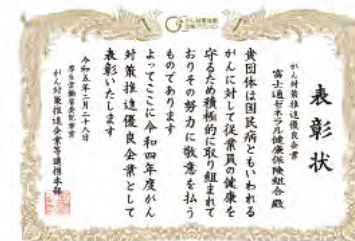 がん対策推進
企業アクション
表彰状
がん対策推進優良企業
富士通ゼネラル健康保険組合 殿
貴団体は国民病ともいわれる
がんに対して従業員の健康を
守るため積極的に取り組まれて
おりその努力に敬意を払う
ものであります
よってここに令和四年度がん
対策推進優良企業として
表彰いたします
令和五年二月二十八日
厚生労働省委託事業
がん対策推進企業等連携本部